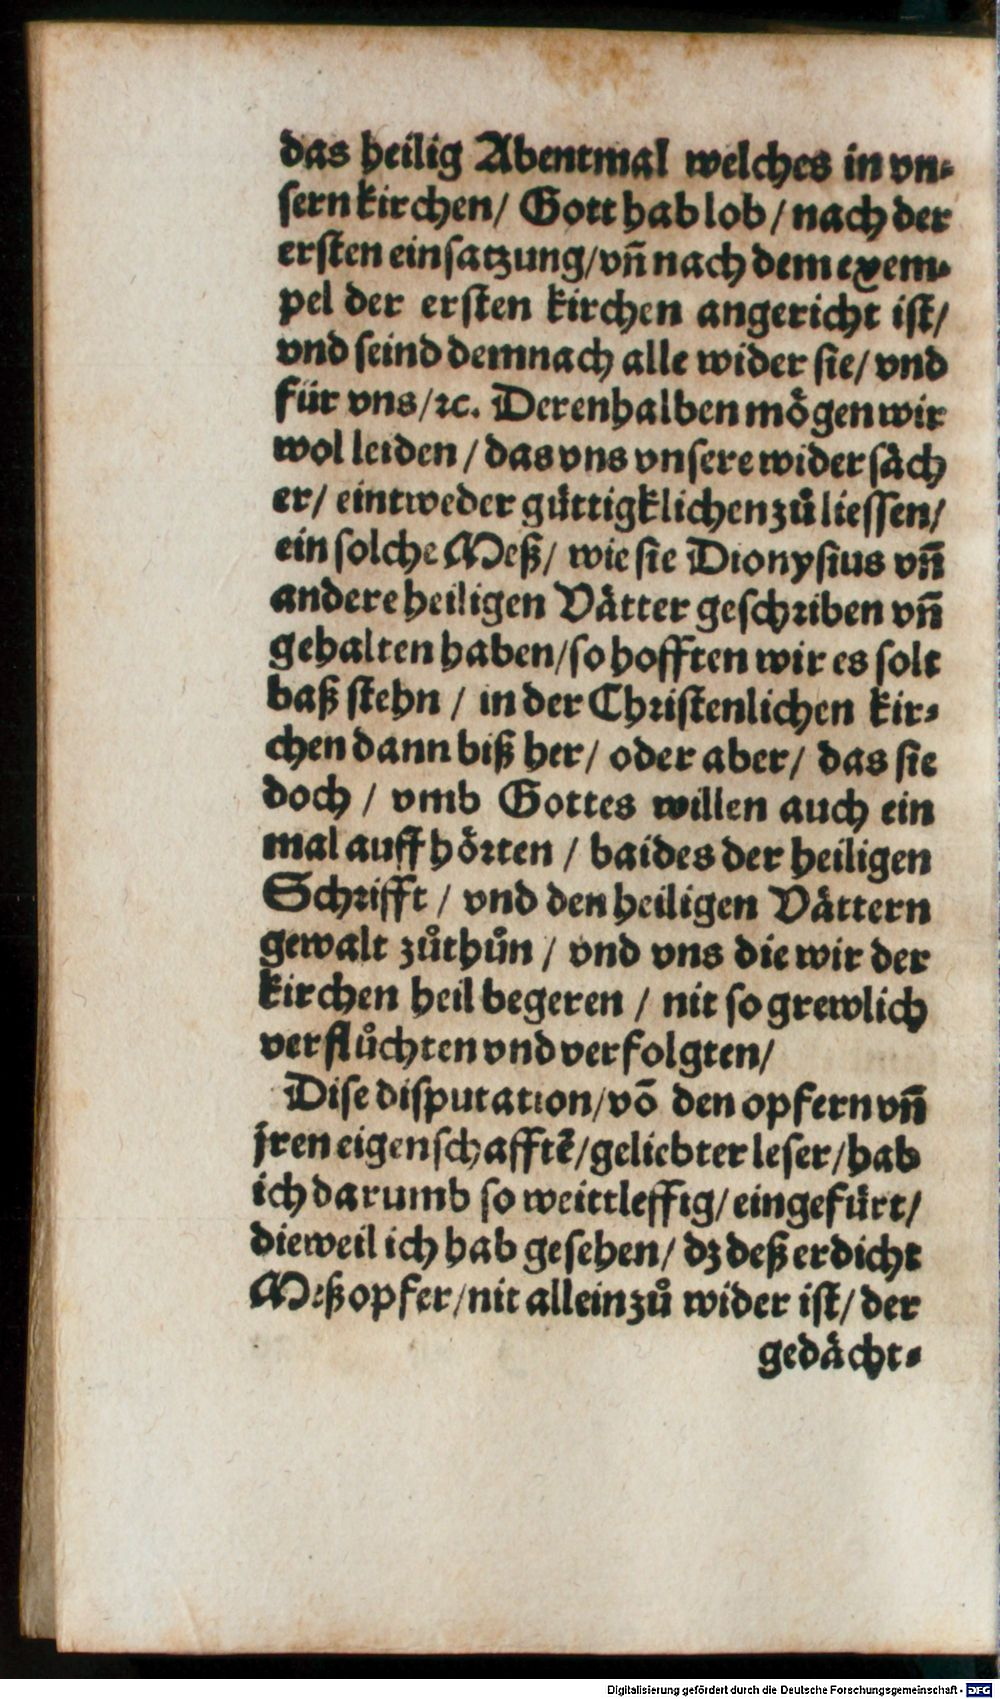 das heilig Abentmal welches in vn⸗
sern kirchen/ Gott hab lob/ nach der
ersten einsatzung/ vñ nach dem exem⸗
pel der ersten kirchen angericht ist/
vnd seind demnach alle wider sie/ vnd
für vns/ ꝛc. Derenhalben moͤgen wir
wol leiden/ das vns vnsere widersaͤch
er/ eintweder guͤttigklichen zuͦ liessen/
ein solche Meß/ wie sie Dionysius vñ
andere heiligen Vaͤtter geschꝛiben vñ
gehalten haben/ so hofften wir es solt
baß stehn/ in der Chꝛistenlichen kir⸗
chen dann biß her/ oder aber/ das sie
doch/ vmb Gottes willen auch ein
mal auff hoͤꝛten/ baides der heiligen
Schꝛifft/ vnd den heiligen Vaͤttern
gewalt zuͦthuͦn/ vnd vns die wir der
kirchen heil begeren/ nit so grewlich
verfluͦchten vnd verfolgten/
Dise disputation/ võ den opfern vñ
jren eigenschafftẽ/ geliebter leser/ hab
ich darumb so weittleffig/ eingefuͤrt/
dieweil ich hab gesehen/ dz deß erdicht
Meßopfer/ nit allein zuͦ wider ist/ der
gedaͤcht⸗
Digitalisierung gefördert durch die Deutsche Forschungsgemeinschaft - DFG